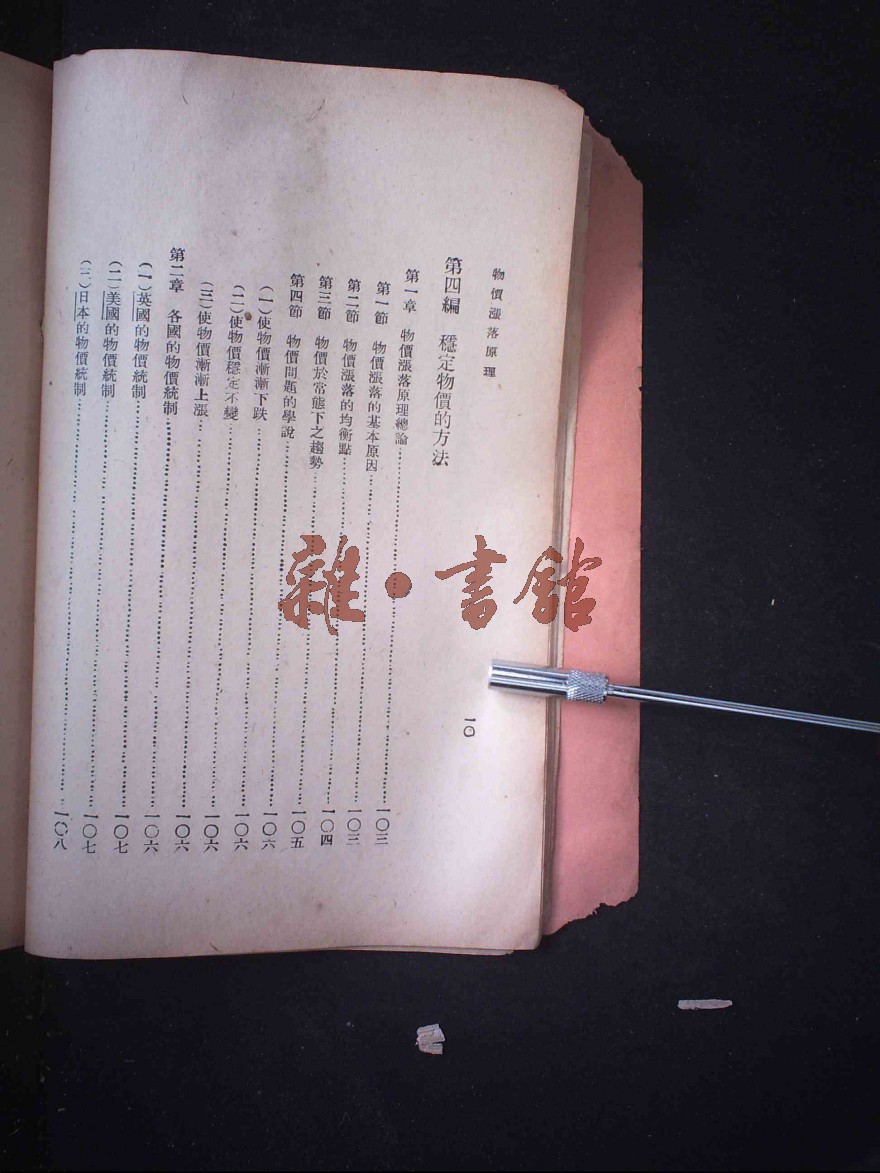 物價漲落原理
一〇
第四編 穩定物價的方法
第一章 物價漲落原理總論……一〇三
第一節 物價漲落的基本原因……一〇三
第二節 物價漲落的均衡點……一〇四
第三節 物價於常態下之趨勢……一〇五
第四節 物價問題的學說……一〇六
(一)使物價漸漸下跌……一〇六
(二)使物價穩定不變……一〇六
(三)使物價漸漸上漲……一〇六
第二章 各國的物價統制……一〇六
(一)英國的物價統制……一〇七
(二)美國的物價統制……一〇七
(三)日本的物價統制……一〇八
雜·書館